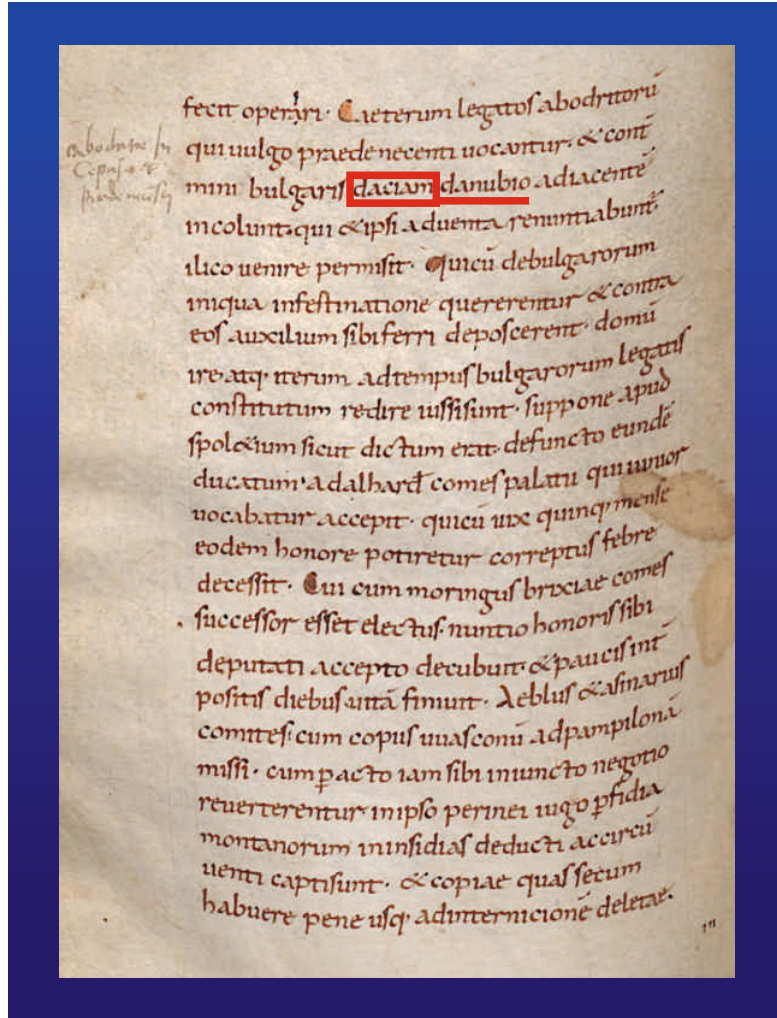 fecit operari· Caeterum legatos abodritorū
qui uulgo praedenecenti uocantur· & cont
mini bulgaris daciam danubio adiacentē
incolunt· qui & ipsi aduenta renuntiabunt·
ilico uenire permisit· Quicū debulgarorum
iniqua infestinatione quererentur & contra
eos auxilium sibi ferri deposcerent· domū
ire atq· iterum adtempus bulgarorum legatis
constitutum redire iussi sunt· suppone apud
spol&ium sicut dictum erat· defuncto eundē
ducatum adalhard comes palatii qui iunior
uocabatur accepit· quicū uix quinq· mense
eodem honore potiretur correptus febre
decessit· Cui cum moringus brixiae comes
successor esset electus· nuntio honoris sibi
deputati accepto decubuit· & paucis int
positis diebus uitā finiuit· Aeblus & asinarius
comites· cum copiis uuasconū adpampilonā
missi· cum pacto iam sibi iniuncto negotio
reuerterentur· inipso perinei iugo pfidia
montanorum ininsidias deducti accircū
uenti capti sunt· & copiae quas secum
habuere pene usq· adinternicionē deletae·